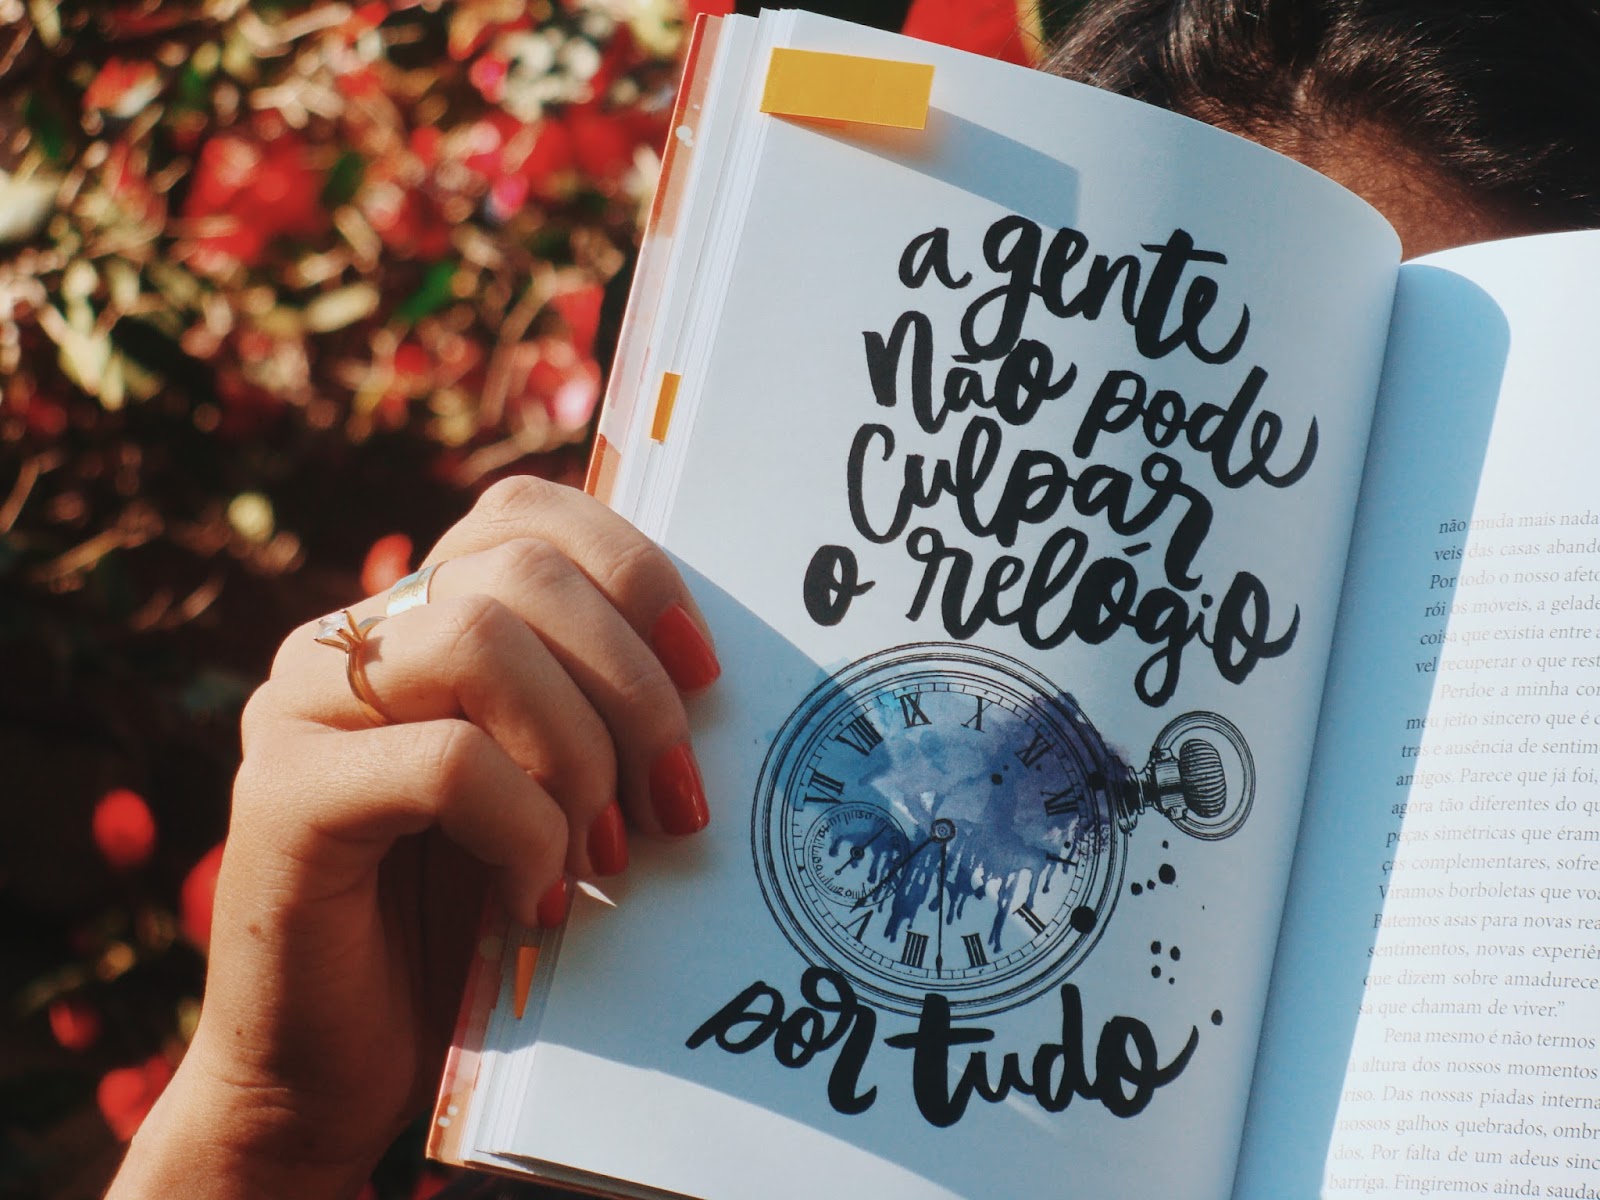 a gente
não pode
culpar
o relógio
por tudo
VIII IX X XI
VII XII
V IIII III II I
não muda mais nada
veis das casas aband
Por todo o nosso afeto
rói os móveis, a gelad
coisa que existia entre a
vel recuperar o que rest
Perdoe a minha
meu jeito sincero que é
tras e ausência de sentim
amigos. Parece que já foi,
agora tão diferentes do qu
peças simétricas que éram
ças complementares, sofre
Viramos borboletas que voa
Batemos asas para novas rea
sentimentos, novas experiên
que dizem sobre amadurece
sa que chamam de viver.”
Pena mesmo é não termos
a altura dos nossos momentos
riso. Das nossas piadas interna
nossos galhos quebrados, ombr
dos. Por falta de um adeus sinc
barriga. Fingiremos ainda sauda